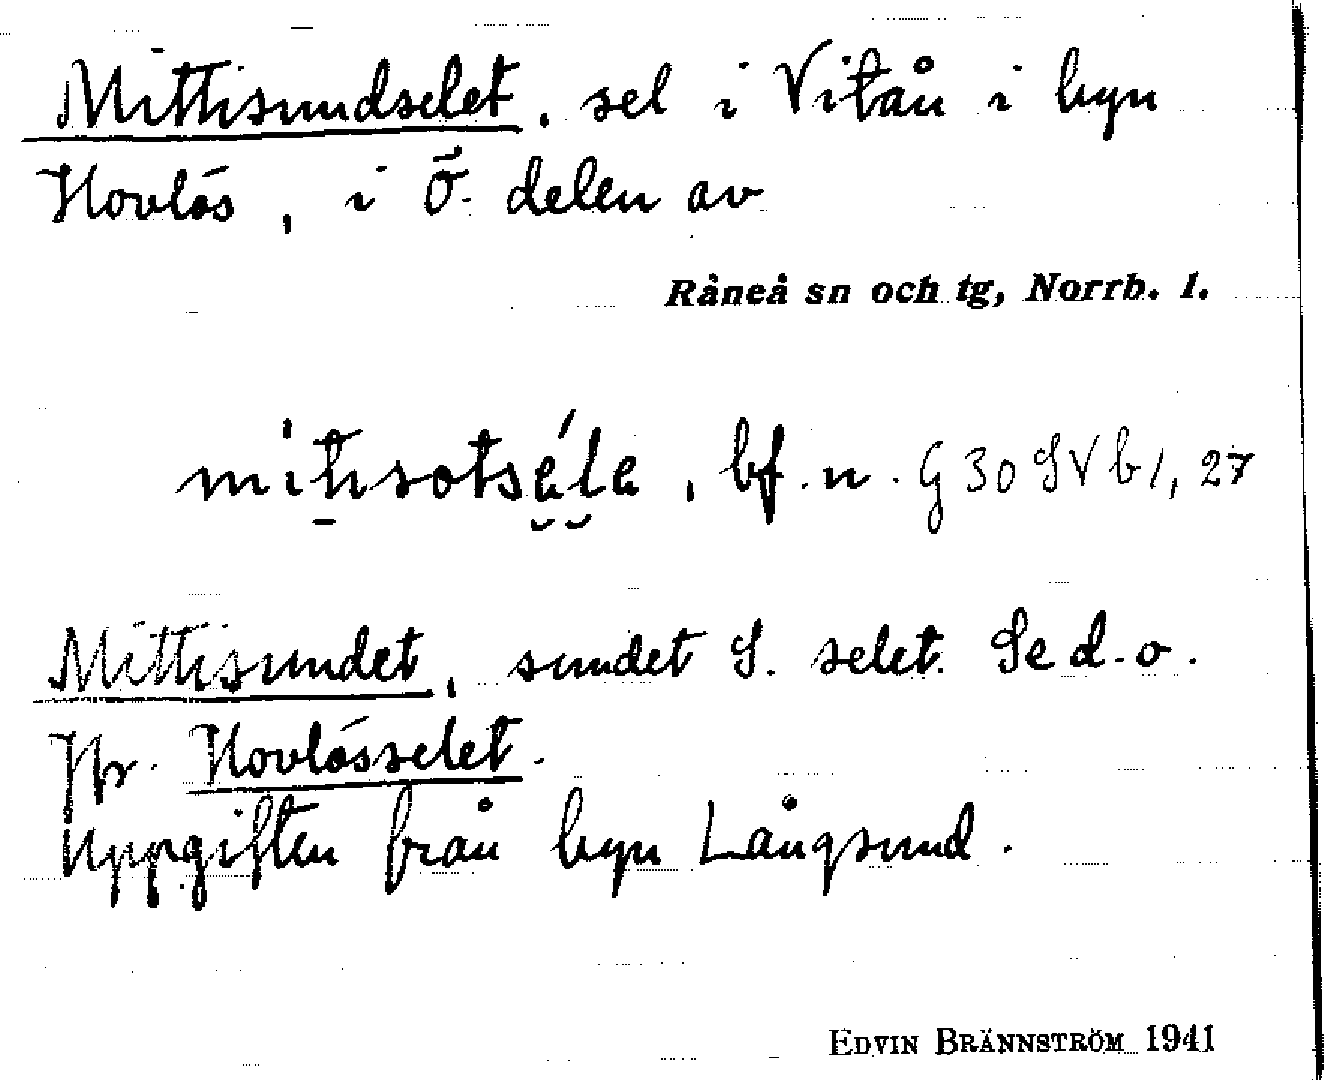 Mittisundselet, sel i Vitån i byn
Hovlös, i Ö. delen av
Råneå sn och tg, Norrb. l.
bf. n. G 30 SV b 1, 27
Mittisundet, sundet S. selet. Se d. o.
Jfr. Hovlösselet.
Uppgiften från byn Långsund.
EDVIN BRÄNNSTRÖM 1941